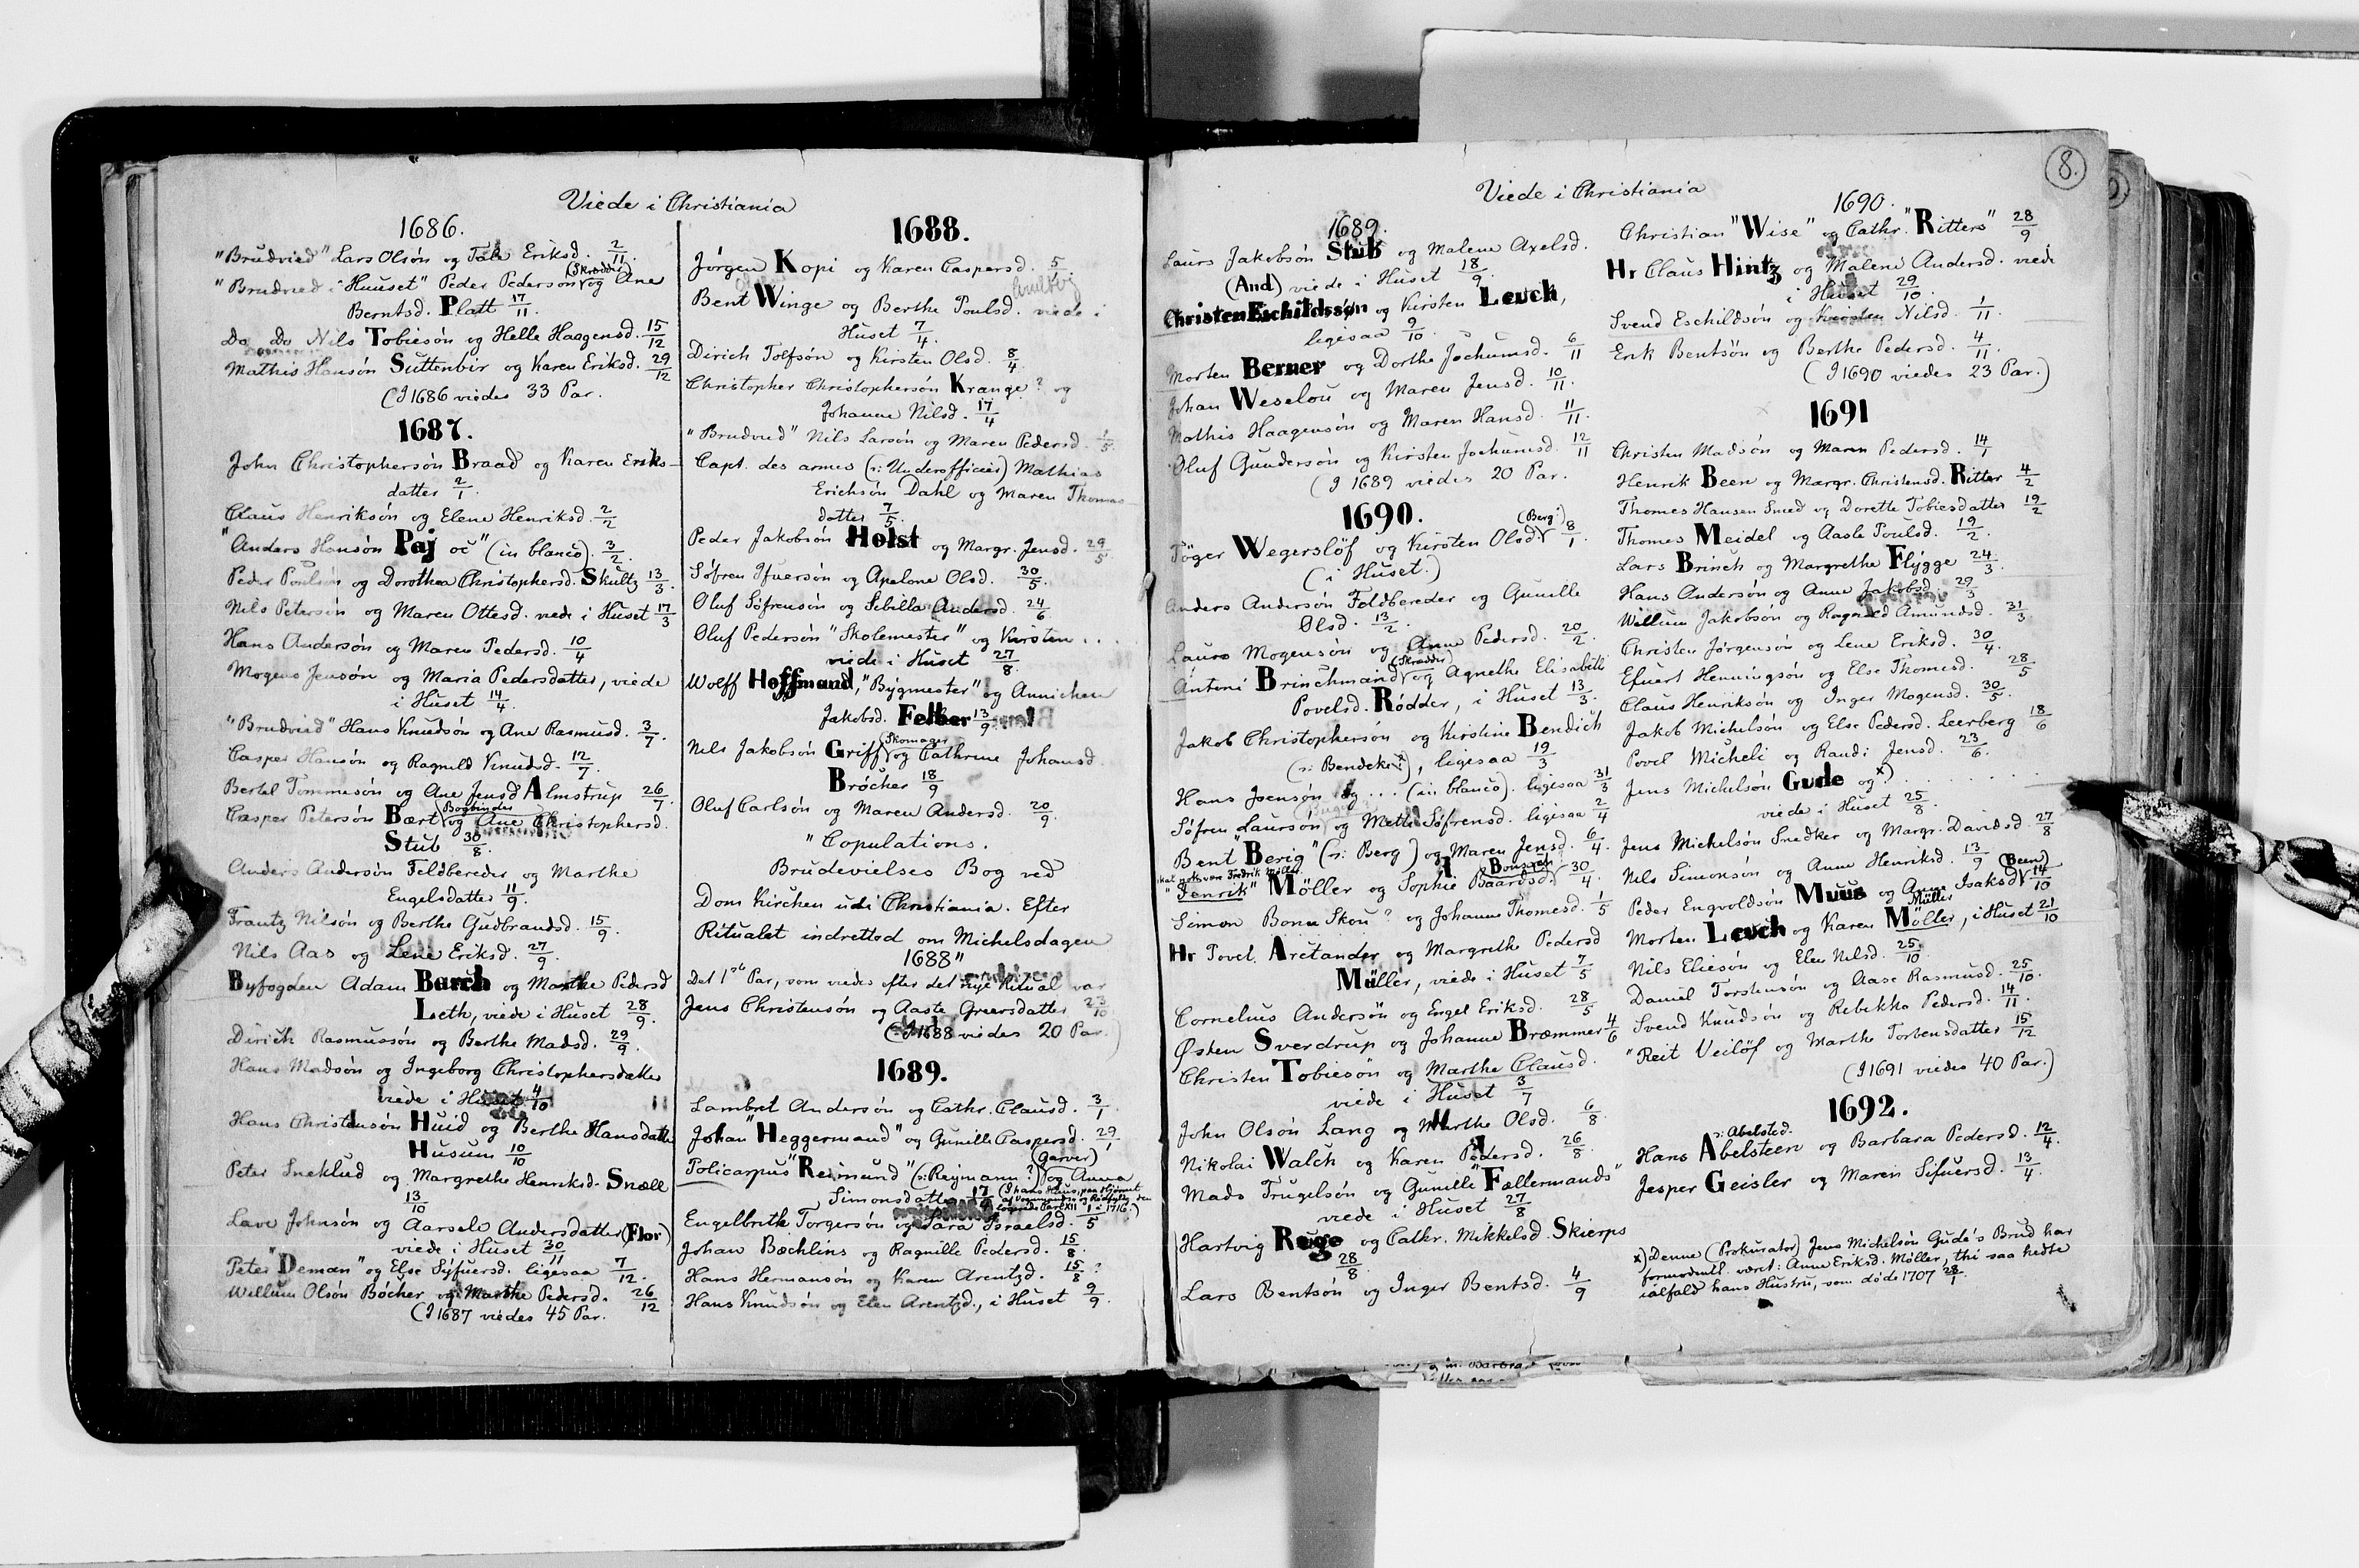 Viede i Christiania
1686.
"Brudvied" Lars Olsön og Tale Eriksd. 2/11.
"Brudvied i Huuset" Peder Pedersön (Skræder) og Ane
Berntsd. Platt 17/11.
Do Do Nils Tobiesön og Helle Haagensd. 15/12
Mathis Hansön Suttenbir og Karen Eriksd. 29/12
(I 1686 viedes 33 Par.
1687.
John Christophersön Braad og Karen Eriks-
datter 2/1.
Claus Henriksön og Elene Henriksd. 2/2
"Anders Hansön Paj oc" (in blanco). 3/2.
Peder Poulsön og Dorothea Christophersd. Skultz 13/3.
Nils Petersön og Maren Ottesd. viede i Huset 17/3
Hans Andersön og Maren Pedersd. 10/4
Mogens Jensön og Maria Pedersdatter, viede
i Huset 14/4.
"Brudvied" Hans Knudsön og Ane Rasmusd. 3/7.
Casper Hansön og Ragnild Knudsd. 12/7.
Bertel Tommesön og Ane Jensd Almstrup 26/7.
Casper Petersön Bært (Bogbinder) og Ane Christophersd.
Stub 30/8.
Anders Andersön Feldbereder og Marthe
Engelsdatter 11/9.
Frantz Nilsön og Berthe Gudbrandsd. 15/9.
Nils Aas og Lene Eriksd. 27/9.
Byfogden Adam Barch og Marthe Pedersd
Leth, viede i Huset 28/9.
Dirich Rasmussön og Berthe Madsd. 29/9.
Hans Madsön og Ingeborg Christophersdatter
viede i Huset 4/10
Hans Christensön Huid og Berthe Hansdatter
Husum 10/10
Peter Sneklud og Margrethe Henriksd. Snell
13/10
Lave Johnsön og Aarsele Andersdatter (Flor)
viede i Huset 30/11
Peter "Deman" og Else Syfuersd. ligesaa 7/12.
Willum Olsön Böcher og Marthe Pedersd. 26/12
(I 1687 viedes 45 Par.
1688.
Jörgen Kopi og Karen Caspersd. 5/
Bent Winge og Berthe Poulsd. viede i
Huset 7/4.
Dirich Tolfsön og Kirsten Olsd. 8/4.
Christopher Christophersön Krange? og
Johanne Nilsd. 17/4
"Brudvied" Nils Larsön og Maren Pedersd. 1/5.
Capt. des armes (ɔ: Underofficier) Mathias
Erichsön Dahl og Maren Thomas-
datter 7/5.
Peder Jakobsön Holst og Margr. Jensd. 29/5
Söfren Ifuersön og Apelone Olsd. 30/5.
Oluf Söfrensön og Sibilla Andersd. 24/6
Oluf Pedersön "Skolemester" og Kirsten ...
viede i Huset 27/8.
Wolff Hoffmand, "Bygmester" og Annichen
Jakobsd. Felber 13/9
Nils Jakobsön Griff (Skomager) og Cathrine Johansd.
Bröcker 18/9
Oluf Carlsön og Maren Andersd. 20/9.
"Copulations.
Brudevielses Bog ved
Dom Kirchen udi Christiania. Efter
Ritualet indrettod om Michelsdagen
1688"
Det 1ste Par, som viedes efter det nye Ritual var
Jens Christensön og Aaste Greersdatter 23/10
(I 1688 viedes 20 Par.)
1689.
Lambret Andersön og Cathr. Clausd. 3/1.
Johan "Heggermand" og Gunille Caspersd. 29/1
Policarpus "Reimund" (ɔ: Reymann?) (Garver) og Anna
Simonsdatter 17/4
Engelbrith Torgersön og Sara Israelsd. 1/5
Johan Bæchlins og Ragnille Pedersd. 15/8.
Hans Hermansön og Karen Arentzd. 15/8 ?
Hans Knudsön og Elen Arentzd., i Huset 9/9.
8.
Viede i Christiania
1689.
Laurs Jakobsön Stub og Malene Axelsd.
(And) viede i Huset 18/9.
Christen Eschildssøn og Kirsten Leuch,
ligesaa 9/10.
Morten Berner og Dorthe Jochumsd. 6/11
Johan Weselou og Maren Jensd. 10/11.
Mathis Haagensön og Maren Hansd. 11/11.
Oluf Gundersön og Kirsten Jochumsd. 12/11
(I 1689 viedes 20 Par.
1690.
Töger Wegerslöf og Kirsten Olsd. (Berg) 8/1.
(i Huset.)
Anders Andersön Feldbereder og Gunille
Olsd. 13/2.
Laurs Mogensön og Anne Pedersd. 20/2.
Antoni Brinchmand (Skræder) og Agnethe Elisabeth
Povelsd. Rödder, i Huset 13/3.
Jakob Christophersön og Kirstine Bendich
(ɔ: Bendeke?), ligesaa 19/3
Hans Joensön og ... (in blanco). ligesaa 31/3
Söfren Laursön og Mette Söfrensd. ligesaa 2/4
Bent "Berig" (ɔ: Berg) og Maren Jensd. 6/4.
skal nok være Fredrik Möller
"Jenrik" Möller og Sophie Baardsd. 30/4.
Simon Bonu Skou? og Johanne Thomesd. 1/5
Hr Povel Aretander og Margrethe Pedersd
Müller, viede i Huset 7/5
Cornelius Andersön og Engel Eriksd. 28/5
Østen Sverdrup og Johanne Bræmmer 4/6
Christen Tobiesön og Marthe Clausd.
viede i Huset 3/7
John Olsön Lang og Marthe Olsd. 6/8.
Nikolai Walch og Karen Pedersd. 26/8.
Mads Trugelsön og Gunille "Fællermands"
viede i Huset 27/8
Hartvig Rege og Cathr. Mikkelsd. Skierps
28/8.
Lars Bentsön og Inger Bentsd. 4/9
1690.
Christian "Wise" og Cathr. "Ritters" 28/9
Hr Claus Hintz og Malene Andersd. viede
i Huset 29/10.
Svend Eschildsön og Kirsten Nilsd. 1/11.
Erik Bentsön og Berthe Pedersd. 4/11.
(I 1690 viedes 23 Par.)
1691
Christen Madsön og Maren Pedersd. 14/1
Henrik Been og Margr. Christensd. Ritter 4/2
Thomes Hansen Smed og Dorette Tobiesdatter 19/2
Thomes Meidel og Aasle Poulsd. 19/2.
Lars Brinch og Margrethe Flygge 24/3.
Hans Andersön og Anne Jakobsd. 29/3
Willum Jakobsön og Ragnild Amundsd. 31/3
Christen Jörgensön og Lene Eriksd. 30/4.
Efuert Henningsön og Else Thomesd. 28/5
Claus Henriksön og Inger Mogensd. 30/5.
Jakob Michelsön og Else Pedersd. Leerberg 18/6
Povel Micheli og Randi Jensd. 23/6.
Jens Michelsön Gude og x) . . . . . .
viede i Huset 25/8.
Jens Michelsön Snedker og Margr. Davidsd. 27/8
Nils Simonsön og Anne Henriksd. 13/9
Peder Engvoldsön Muus og Anne Isaksd (Been) 14/10
Morten Leuch og Karen Möller, i Huset 21/10
Müller
Nils Eliesön og Elen Nilsd. 25/10.
Daniel Torstensön og Aase Rasmusd. 25/10.
Svend Knudsön og Rebekka Pedersd. 14/11.
"Reit Veilöf og Marthe Torbensdatter 15/12
(I 1691 viedes 40 Par.)
1692.
ɔ: Abelsted.
Hans Abelsteen og Barbara Pedersd. 12/4.
Jesper Geisler og Maren Sifuersd. 13/4.
x) Denne (Prokurator) Jens Michelsön Gude's Brud har
formodentl. været: Anne Eriksd. Møller, thi saa hedte
ialfald hans Hustru, som döde 1707 28/1.